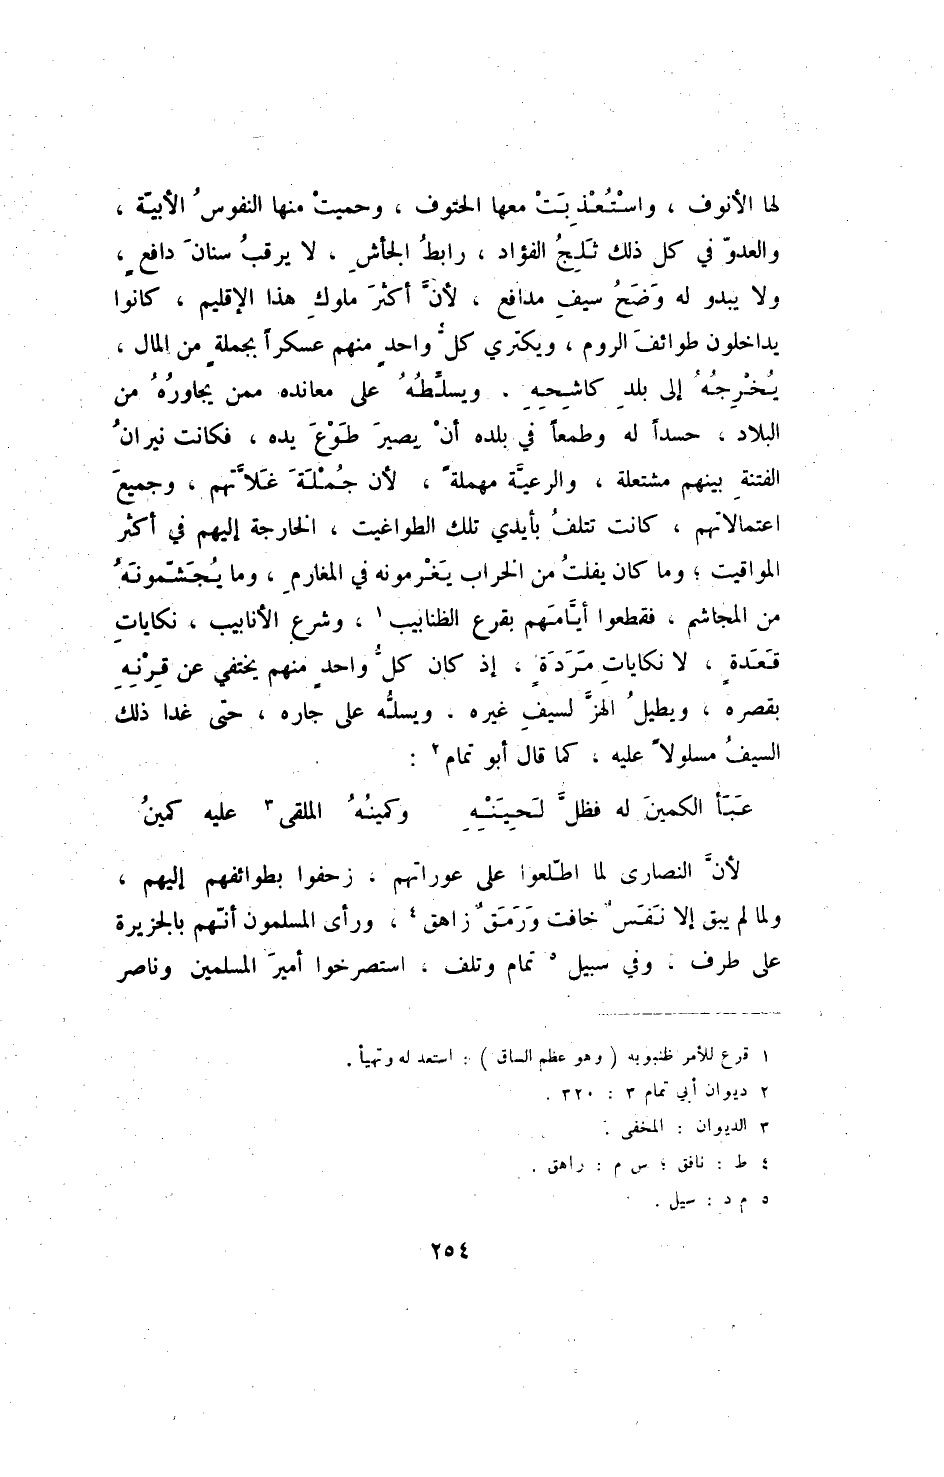 لها الأنوف ، واسْتُعْذِبَتْ معها الحتوف ، وحميتْ منها النفوسُ الأبيّة ،
والعدوّ في كل ذلك ثَلِجُ الفؤاد ، رابطُ الجأشِ ، لا يرقبُ سنانَ دافعٍ ،
ولا يبدو له وَضَحُ سيفِ مدافع ، لأنَّ أكثرَ ملوكِ هذا الإقليم ، كانوا
يداخلون طوائفَ الروم ، ويكتري كلُّ واحدٍ منهم عسكراً بجملةٍ من المال ،
يُخْرِجُهُ إلى بلدِ كاشِحِهِ . ويسلِّطُهُ على معانده ممن يجاورُهُ من
البلاد ، حسداً له وطمعاً في بلده أنْ يصيرَ طَوْعَ يده ، فكانت نيرانُ
الفتنةِ بينهم مشتعلة ، والرعيَّة مهملةً ، لأن جُمْلَةَ غَلاَّتهم ، وجميعَ
اعتمالاتهم ، كانت تتلفُ بأيدي تلك الطواغيت ، الخارجة إليهم في أكثر
المواقيت ؛ وما كان يفلتُ من الخراب يَغْرمونه في المغارمِ ، وما يُجَشّمونَهُ
من المجاشم ، فقطعوا أيَّامَهم بقرع الظنابيب ١ ، وشرع الأنابيب ، نكاياتِ
قَعَدَةٍ ، لا نكاياتِ مَرَدَةٍ ، إذ كان كلُّ واحدٍ منهم يختفي عن قِرْنِهِ
بقصره ، ويطيلُ الهزَّ لسيفِ غيره . ويسلُّه على جاره ، حتّى غدا ذلك
السيفُ مسلولاً عليه ، كما قال أبو تمام ٢ :
عَبَأ الكمينَ له فظلَّ لَحِيَنْهِ وكمينُهُ الملقى ٣ عليه كمينُ
لأنَّ النصارى لما اطّلعوا على عوراتهم ، زحفوا بطوائفهم إليهم ،
ولما لم يبق إلا نَفَسٌ خافت وَرَمَقٌ زاهق ٤ ، ورأى المسلمون أنّهم بالجزيرة
على طرف . وفي سبيل ٥ تمام وتلف ، استصرخوا أميرَ المسلمين وناصر
١ قرع للأمر ظنبوبه ( وهو عظم الساق ) : استعد له وتهيأ .
٢ ديوان أبي تمام ٣ : ٣٢٠ .
٣ الديوان : المخفى .
٤ ط : نافق ؛ س م : راهق .
٥ م د : سيل .
٢٥٤